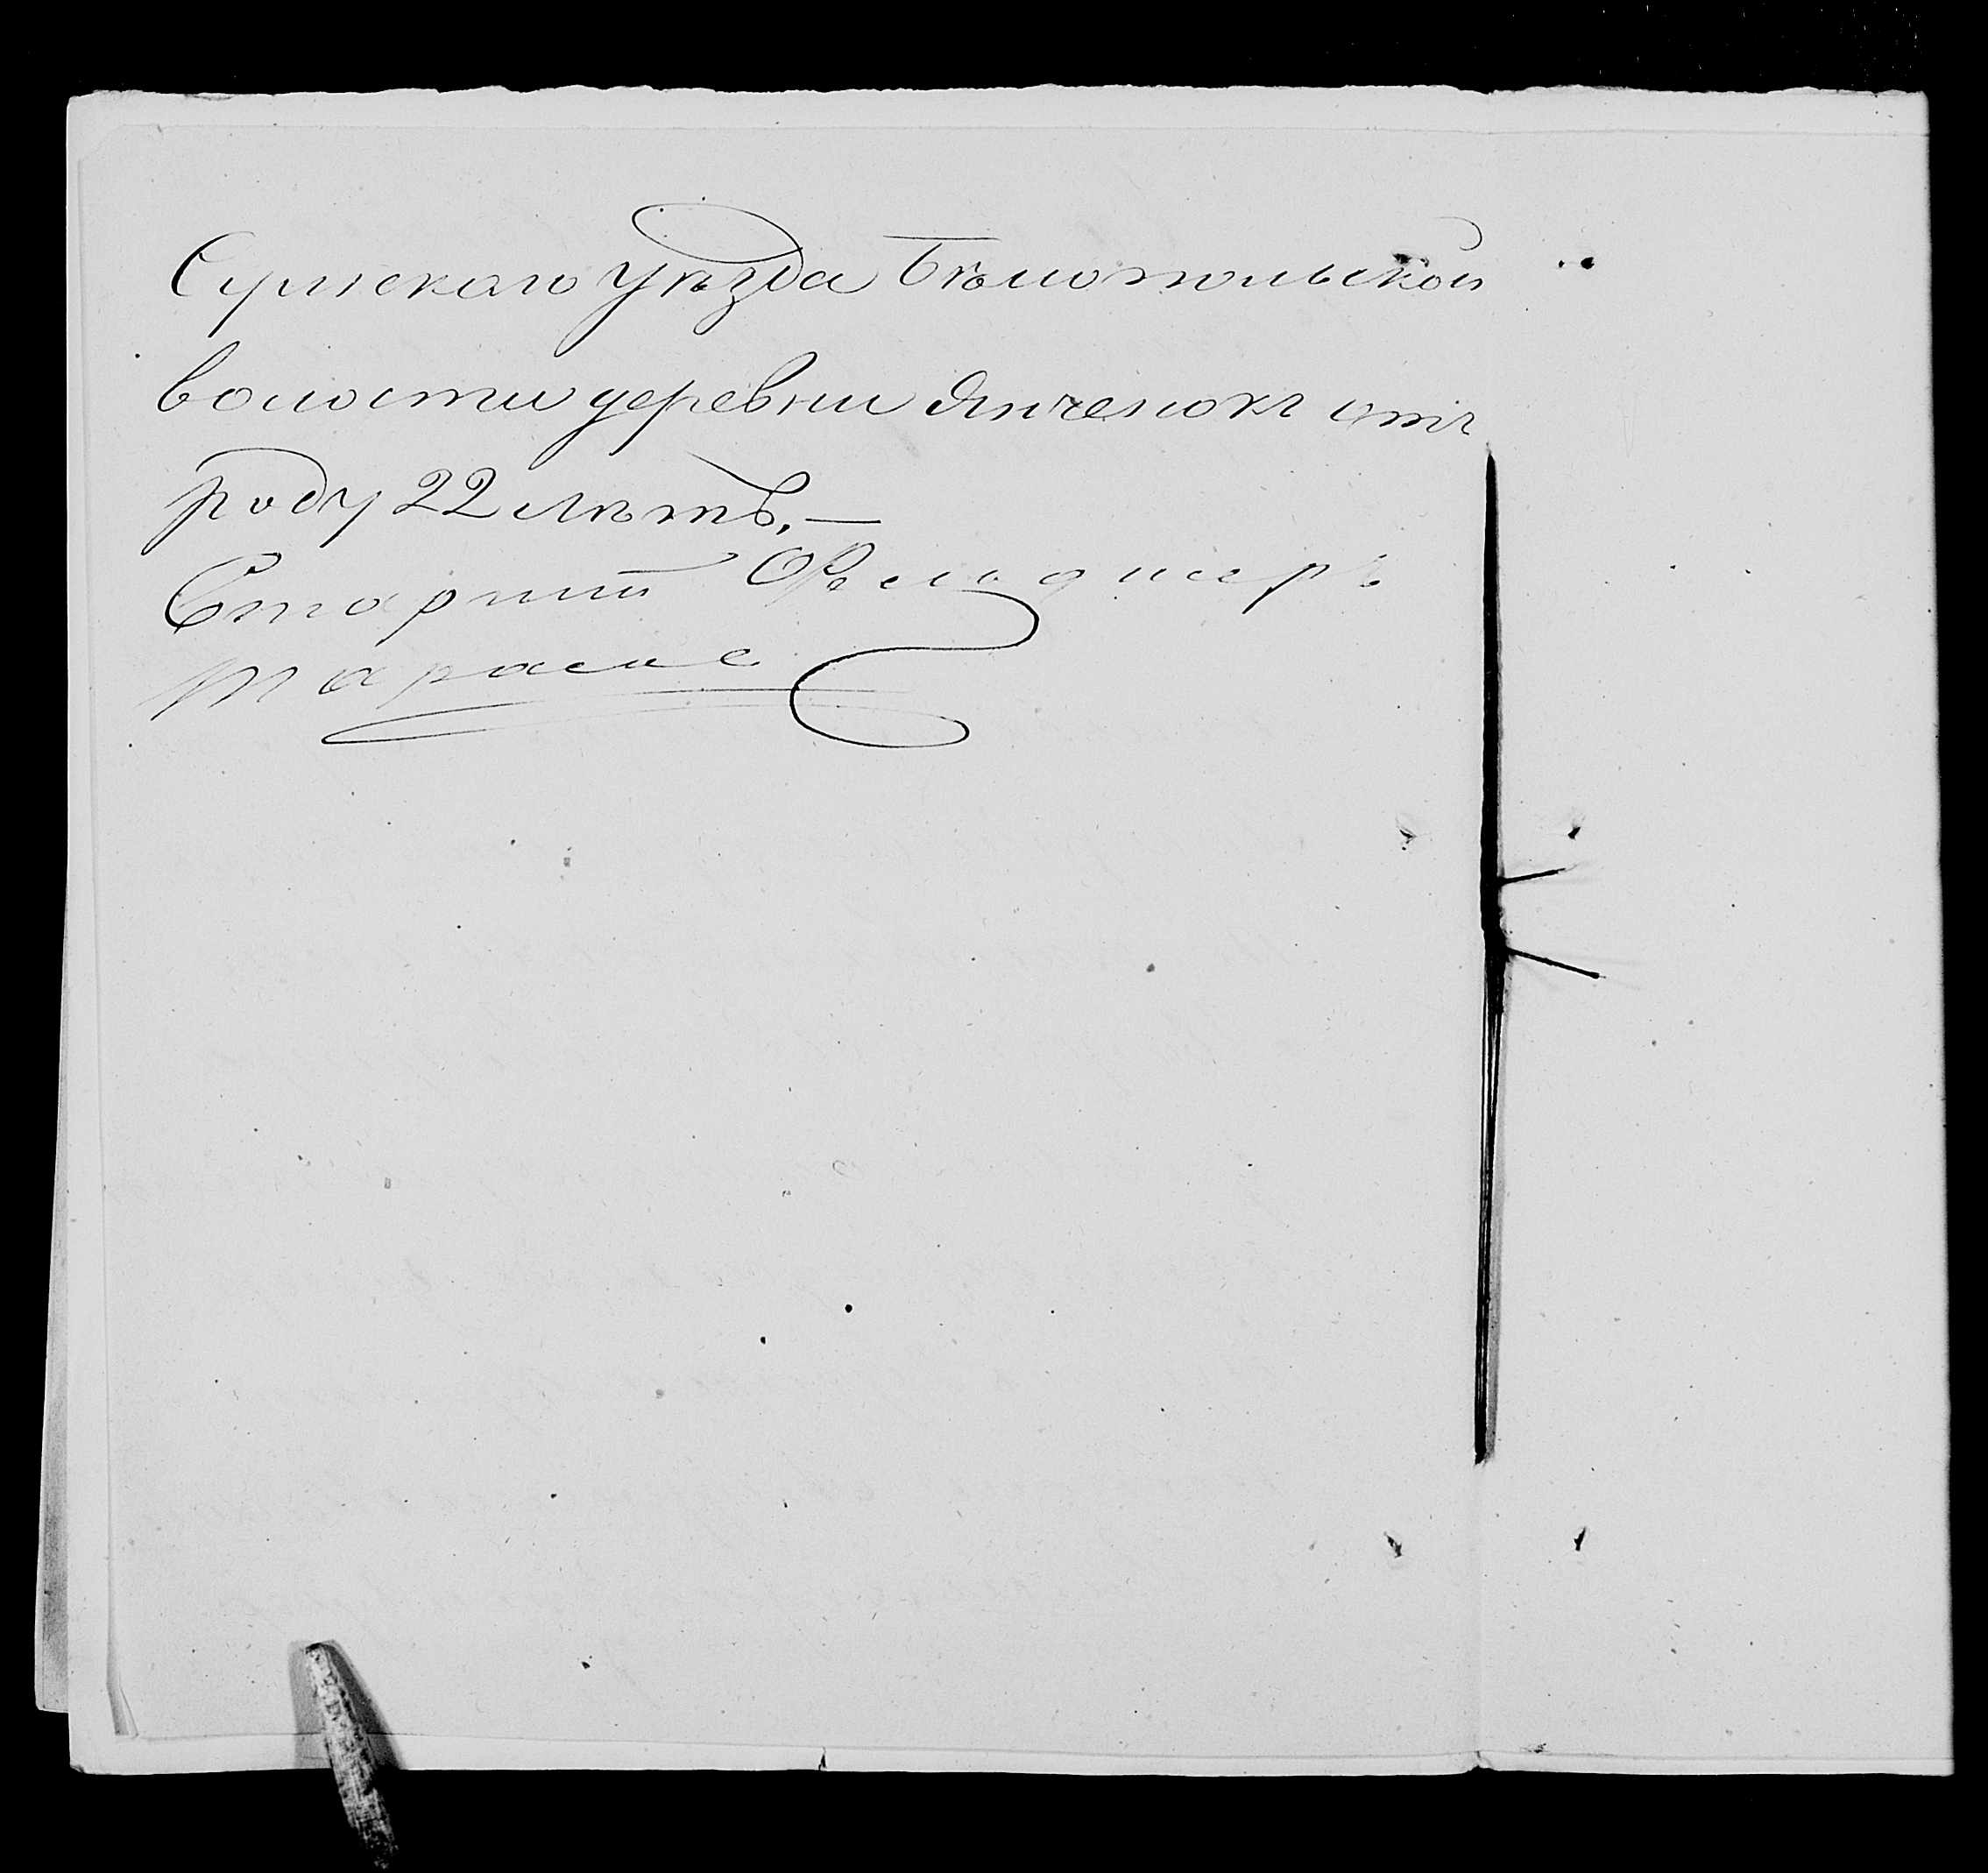 Сумскаго уѣзда Бѣлопольской
волости деревни Янченокъ отъ
роду 22 лѣтъ. —
Старшій Фельдшеръ